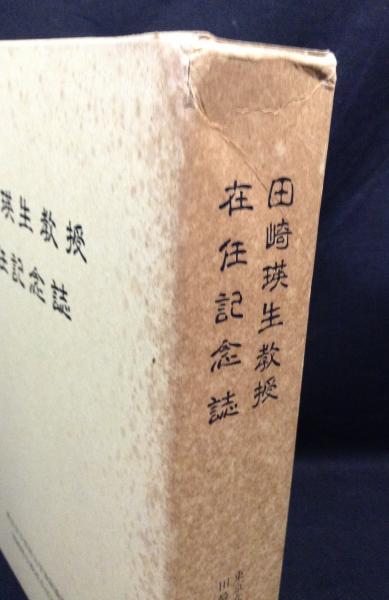 田崎瑛生教授
在任記念誌
瑛生教授
記念誌